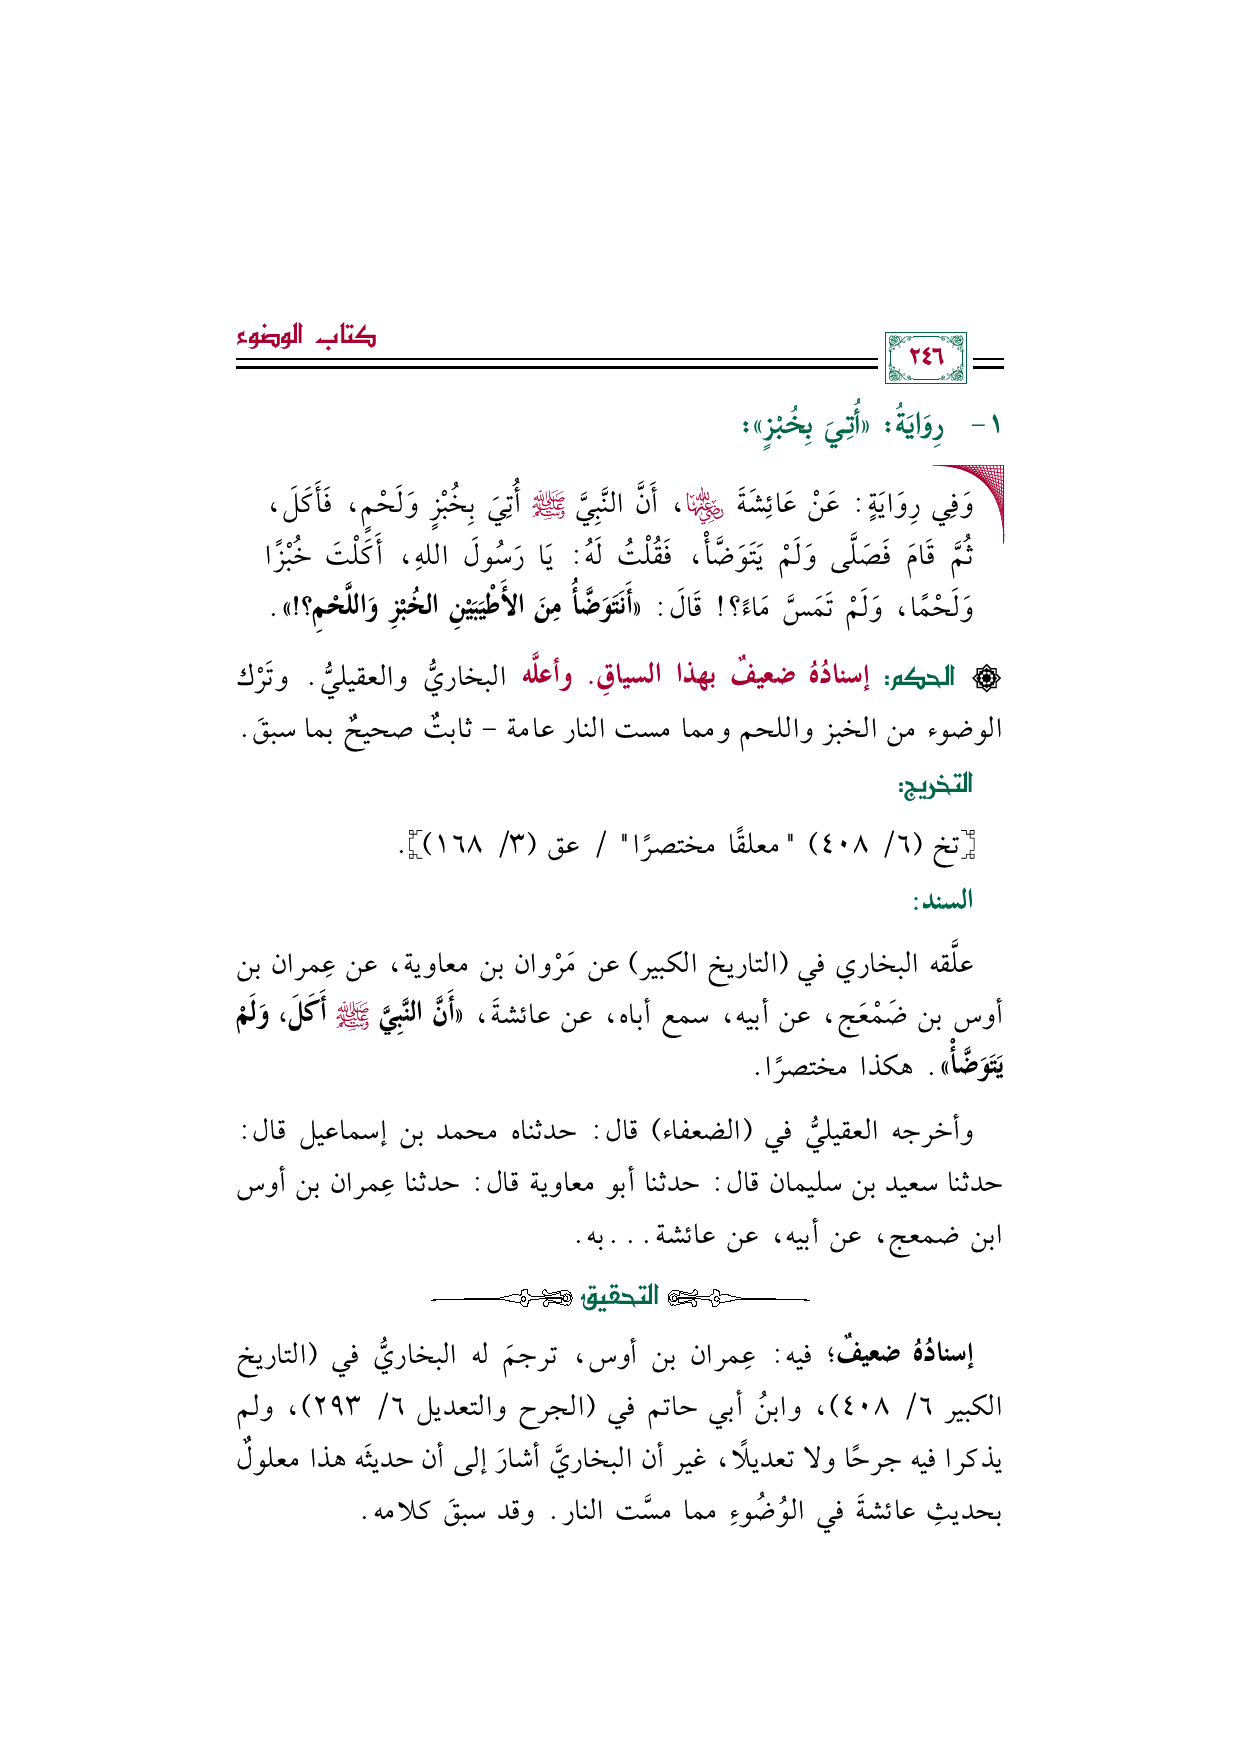 كتاب الوضوء
٢٤٦
١- رِوَايَةُ: «أُتِيَ بِخُبْزٍ»:
وَفِي رِوَايَةٍ: عَنْ عَائِشَةَ رضي الله عنها، أَنَّ النَّبِيَّ ﷺ أُتِيَ بِخُبْزٍ وَلَحْمٍ، فَأَكَلَ،
ثُمَّ قَامَ فَصَلَّى وَلَمْ يَتَوَضَّأْ، فَقُلْتُ لَهُ: يَا رَسُولَ اللهِ، أَكَلْتَ خُبْزًا
وَلَحْمًا، وَلَمْ تَمَسَّ مَاءً؟! قَالَ: «أَنَتَوَضَّأُ مِنَ الأَطْيَبَيْنِ الخُبْزِ وَاللَّحْمِ؟!».
الحكم: إسنادُهُ ضعيفٌ بهذا السياقِ. وأعلَّه البخاريُّ والعقيليُّ. وتَرْك
الوضوء من الخبز واللحم ومما مست النار عامة - ثابتٌ صحيحٌ بما سبقَ.
التخريج:
[تخ (٦/ ٤٠٨) "معلقًا مختصرًا" / عق (٣/ ١٦٨)].
السند:
علَّقه البخاري في (التاريخ الكبير) عن مَرْوان بن معاوية، عن عِمران بن
أوس بن ضَمْعَج، عن أبيه، سمع أباه، عن عائشةَ، «أَنَّ النَّبِيَّ ﷺ أَكَلَ، وَلَمْ
يَتَوَضَّأْ». هكذا مختصرًا.
وأخرجه العقيليُّ في (الضعفاء) قال: حدثناه محمد بن إسماعيل قال:
حدثنا سعيد بن سليمان قال: حدثنا أبو معاوية قال: حدثنا عِمران بن أوس
ابن ضمعج، عن أبيه، عن عائشة... به.
التحقيق
إسنادُهُ ضعيفٌ؛ فيه: عِمران بن أوس، ترجمَ له البخاريُّ في (التاريخ
الكبير ٦/ ٤٠٨)، وابنُ أبي حاتم في (الجرح والتعديل ٦/ ٢٩٣)، ولم
يذكرا فيه جرحًا ولا تعديلًا، غير أن البخاريَّ أشارَ إلى أن حديثَه هذا معلولٌ
بحديثِ عائشةَ في الوُضُوءِ مما مسَّت النار. وقد سبقَ كلامه.